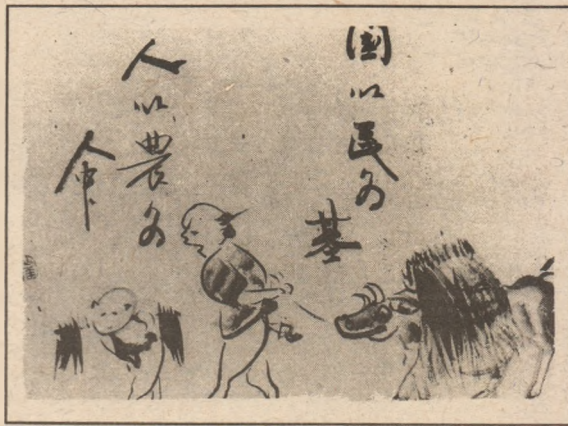 國以民為
基
人以農為
命